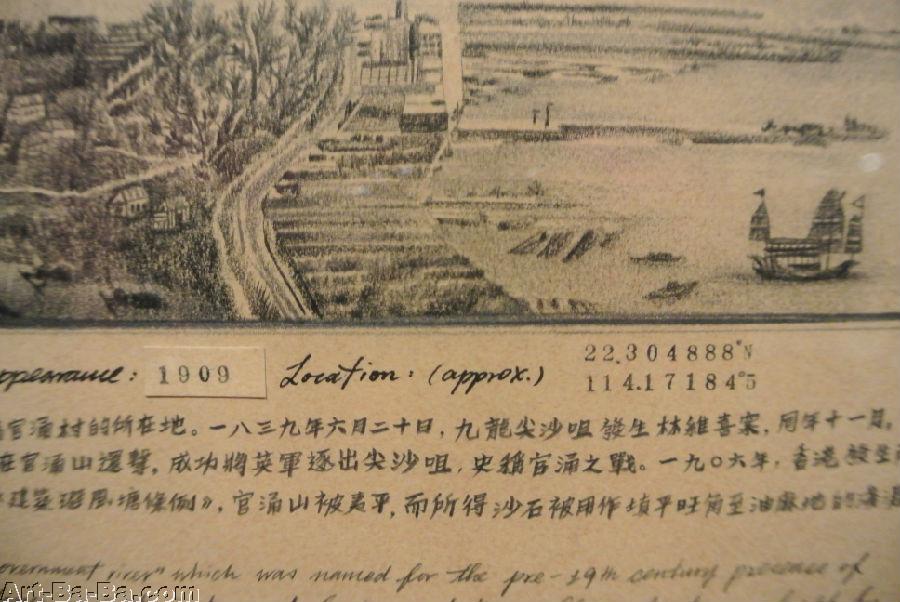 appearance: 1909 Location: (approx.) 22.304888°N
114.17184°5
官涌村的所在地。一八三九年六月二十日，九龍尖沙咀發生林維喜案，同年十一月。
在官涌山還擊，成功將英軍逐出尖沙咀，史稱官涌之戰。一九〇六年，香港發生
建築避風塘條例》，官涌山被夷平，而所得沙石被用作填平旺角至油麻地的
government river" which was named for the pre-19th century presence of
Art-Ba-Ba.com